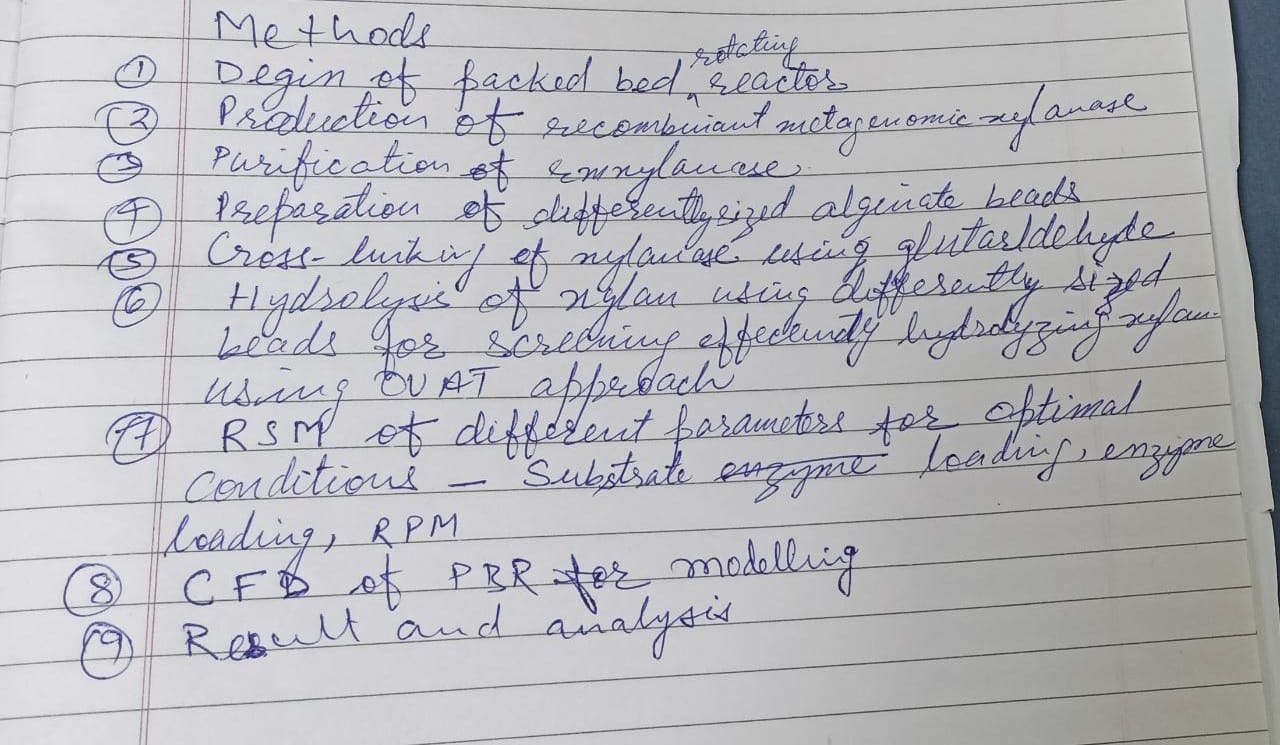 Methods
① Degin of packed bed rotating reactor
② Production of recombinant metagenomic xylanase
③ Purification of xylanase.
④ Preparation of differently sized alginate beads
⑤ Cross-linking of xylanase using glutarldehyde
⑥ Hydrolysis of xylan using differently sized
beads for screening hydrolyzing xylan
using OVAT approach
⑦ RSM of different parameters for optimal
conditions – Substrate enzyme loading, enzyme
loading, RPM
⑧ CFD of PBR for modelling
⑨ Result and analysis